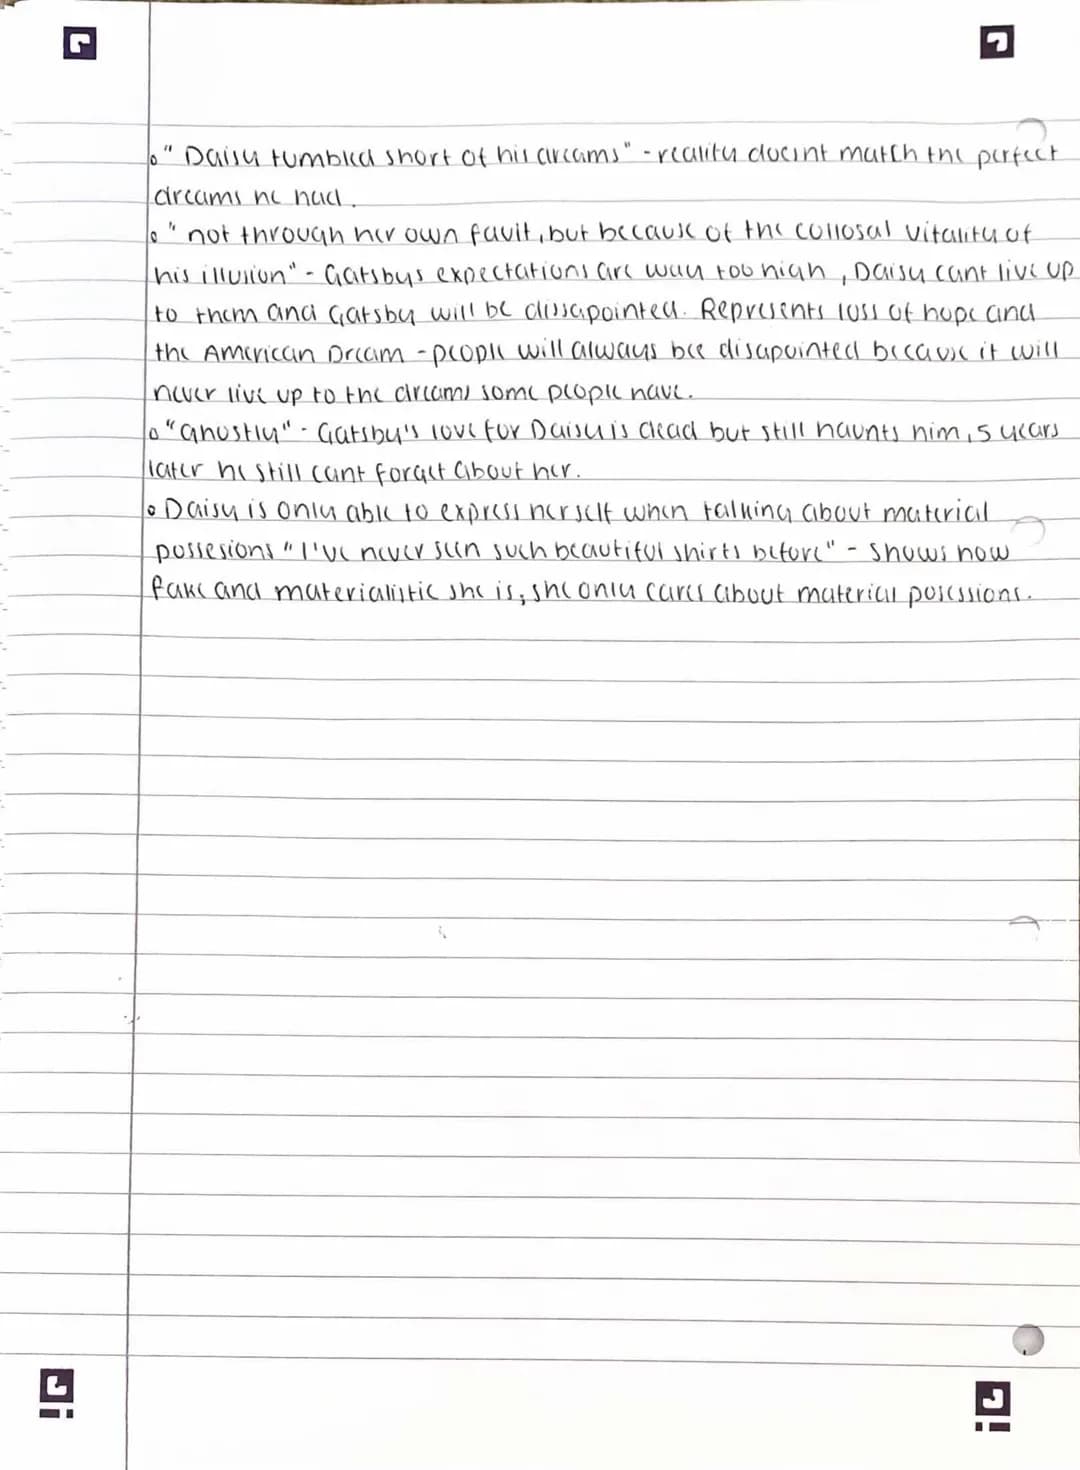 "Daisy tumbled short of his dreams" - reality doesnt match the perfect
dreams he had.
"not through her own fault, but because of the collosal vitality of
his illusion" - Gatsbys expectations are way too high, Daisy cant live up
to them and Gatsby will be dissapointed. Represents loss of hope and
the American Dream - people will always bee disapointed because it will
never live up to the dreams some people have.
"ghostly" - Gatsby's love for Daisy is dead but still haunts him, 5 years
later he still cant forget about her.
Daisy is only able to express herself when talking about material
possesions "I've never seen such beautiful shirts before" - shows how
fake and materialistic she is, she only cares about material posessions.